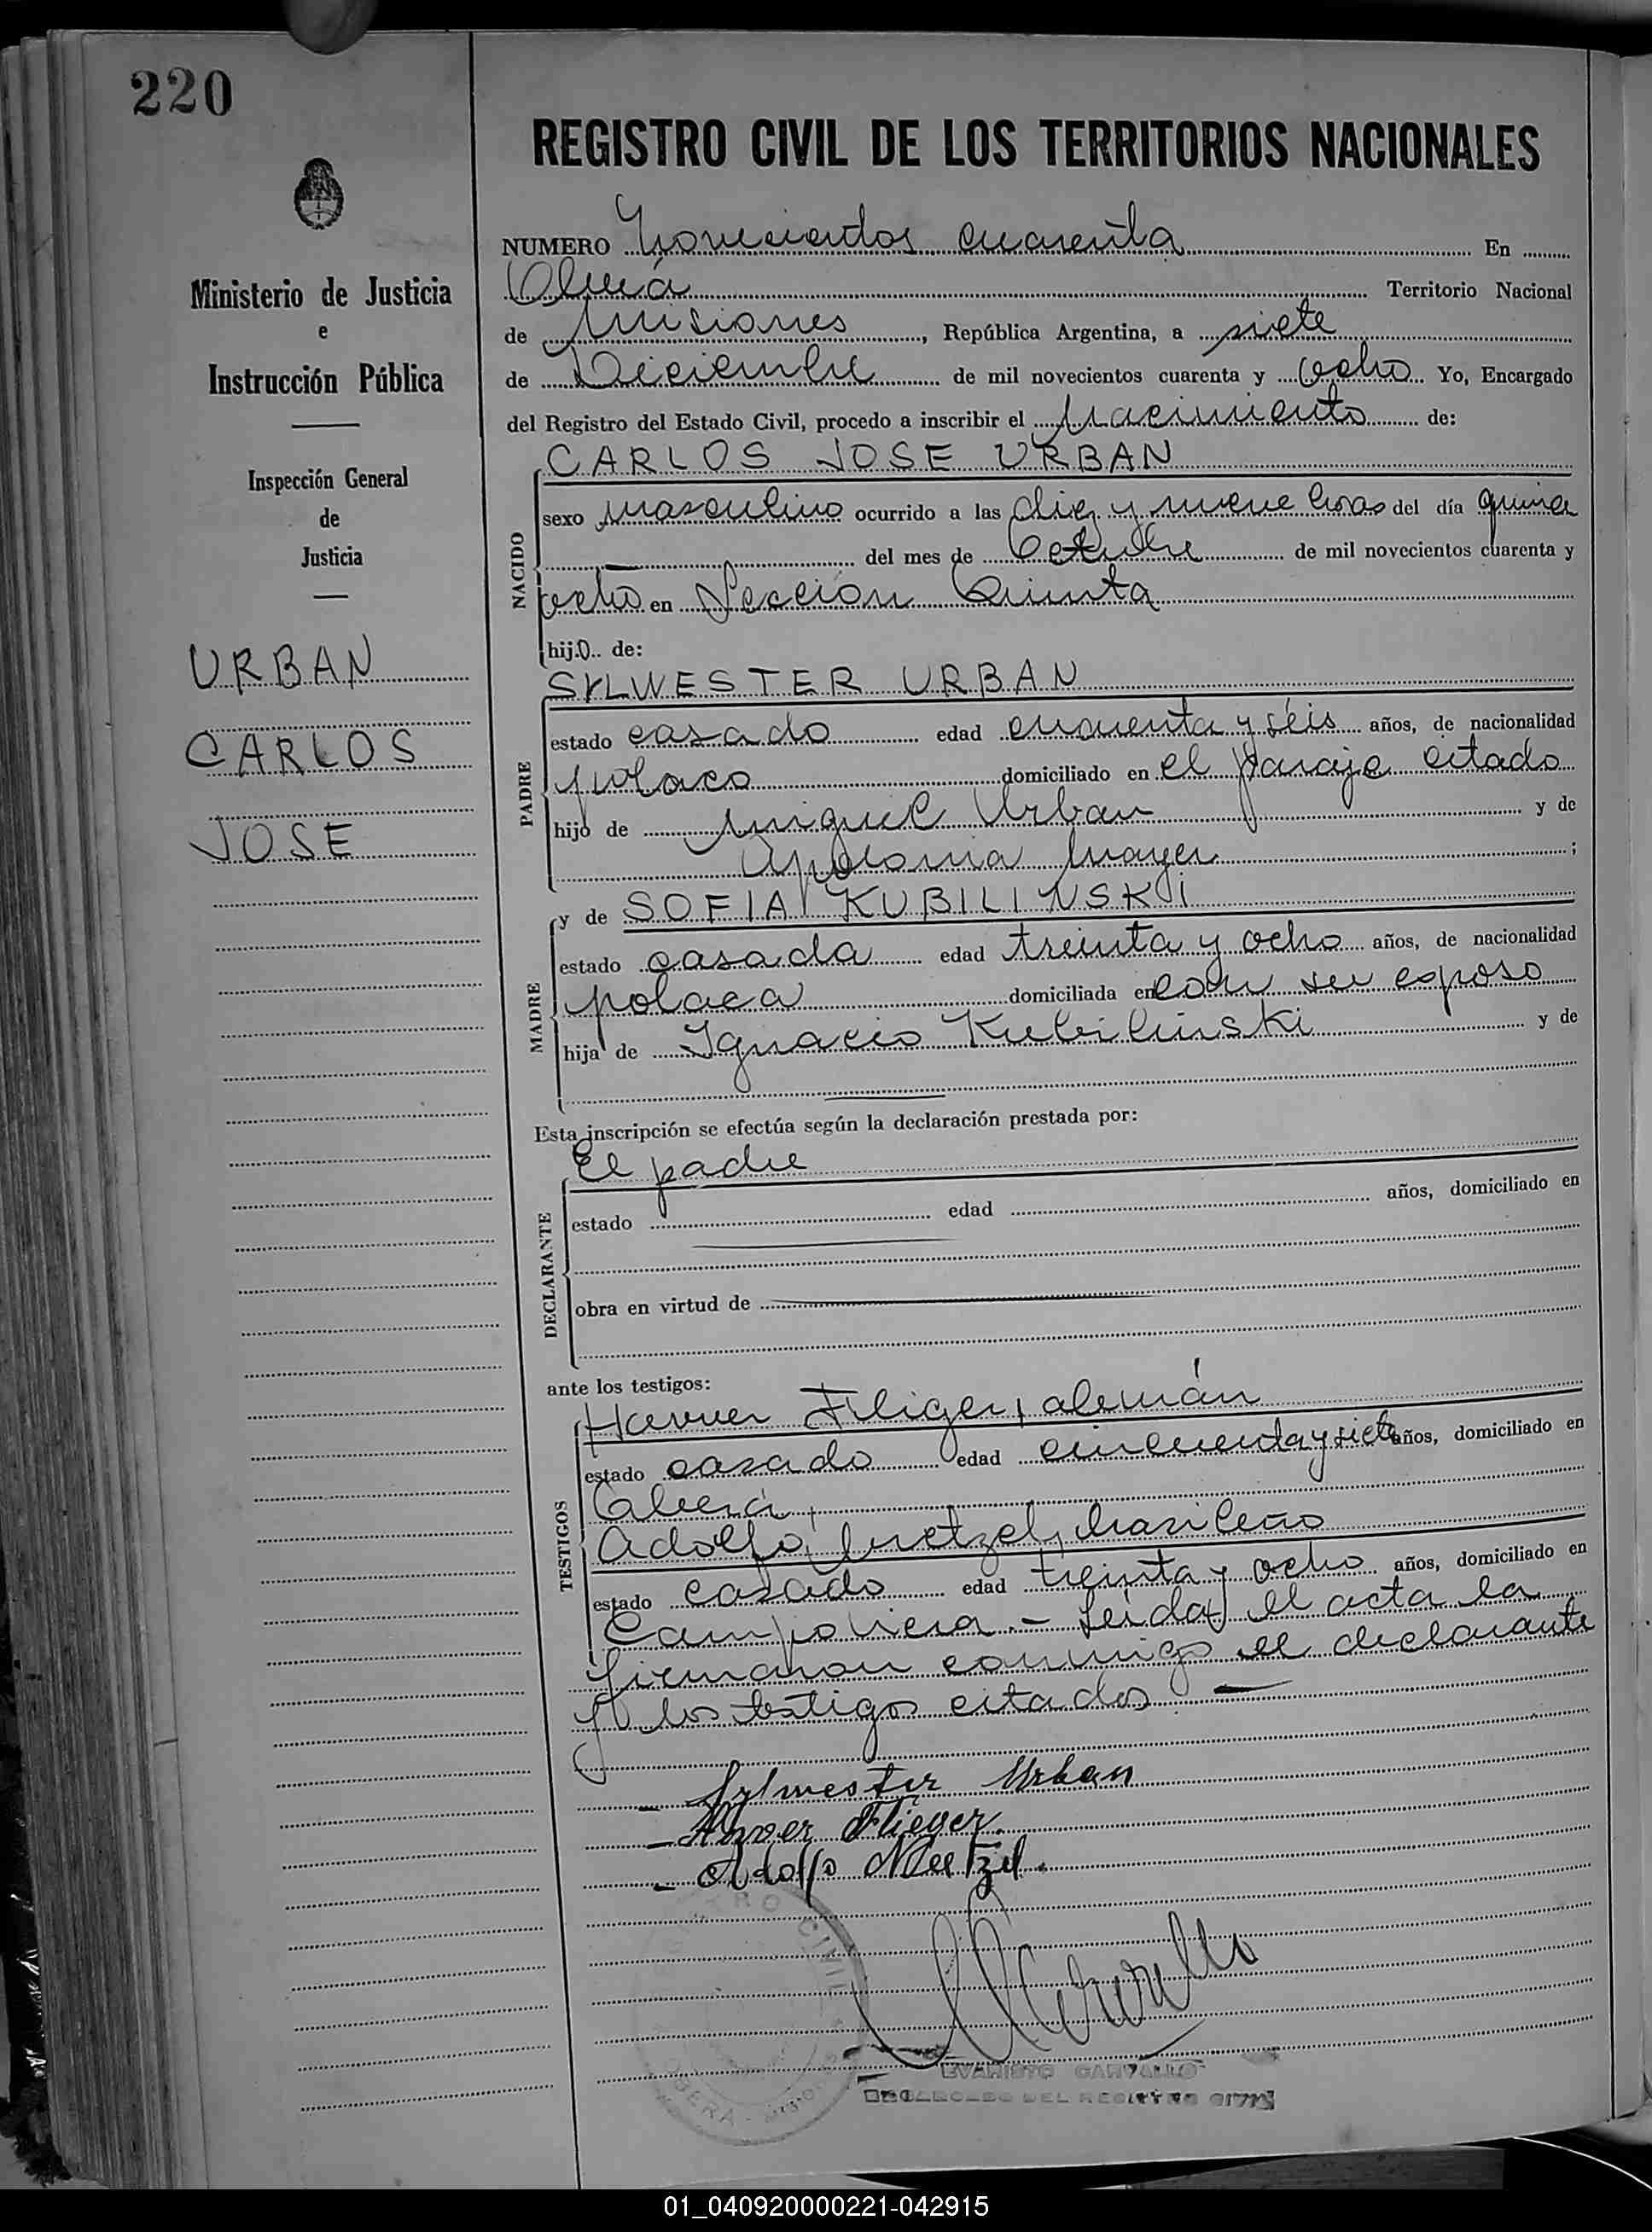 220
Ministerio de Justicia
e
Instrucción Pública
Inspección General
de
Justicia
URBAN
CARLOS
JOSE
REGISTRO CIVIL DE LOS TERRITORIOS NACIONALES
NUMERO Novecientos cuarenta En
Oberá Territorio Nacional
de Misiones, República Argentina, a siete
de Diciembre de mil novecientos cuarenta y ocho Yo, Encargado
del Registro del Estado Civil, procedo a inscribir el Nacimiento de:
NACIDO
CARLOS JOSE URBAN
sexo masculino ocurrido a las diez y nueve horas del día quince
del mes de Octubre de mil novecientos cuarenta y
ocho en Sección Quinta
hijo de:
PADRE
SYLWESTER URBAN
estado casado edad cuarenta y séis años, de nacionalidad
polaco domiciliado en el paraje citado
hijo de Miguel Urban y de
Apolonia Mayer ;
MADRE
y de SOFIA KUBILINSKI
estado casada edad treinta y ocho años, de nacionalidad
polaca domiciliada en con su esposo
hija de Ignacio Kubilinski y de
Esta inscripción se efectúa según la declaración prestada por:
DECLARANTE
El padre
estado edad años, domiciliado en
obra en virtud de
ante los testigos:
TESTIGOS
Filiger, alemán
estado casado edad cincuenta y siete años, domiciliado en
Oberá,
Adolfo Metzel, brasileño
estado casado edad treinta y ocho años, domiciliado en
Campo Viera.- Leída el acta la
firmaron conmigo el declarante
y los testigos citados —
- Sylwester Urban
- Flieger.
- Adolfo Metzel.
EVARISTO CARVALLO
ENCARGADO DEL REGISTRO CIVIL
01_040920000221-042915